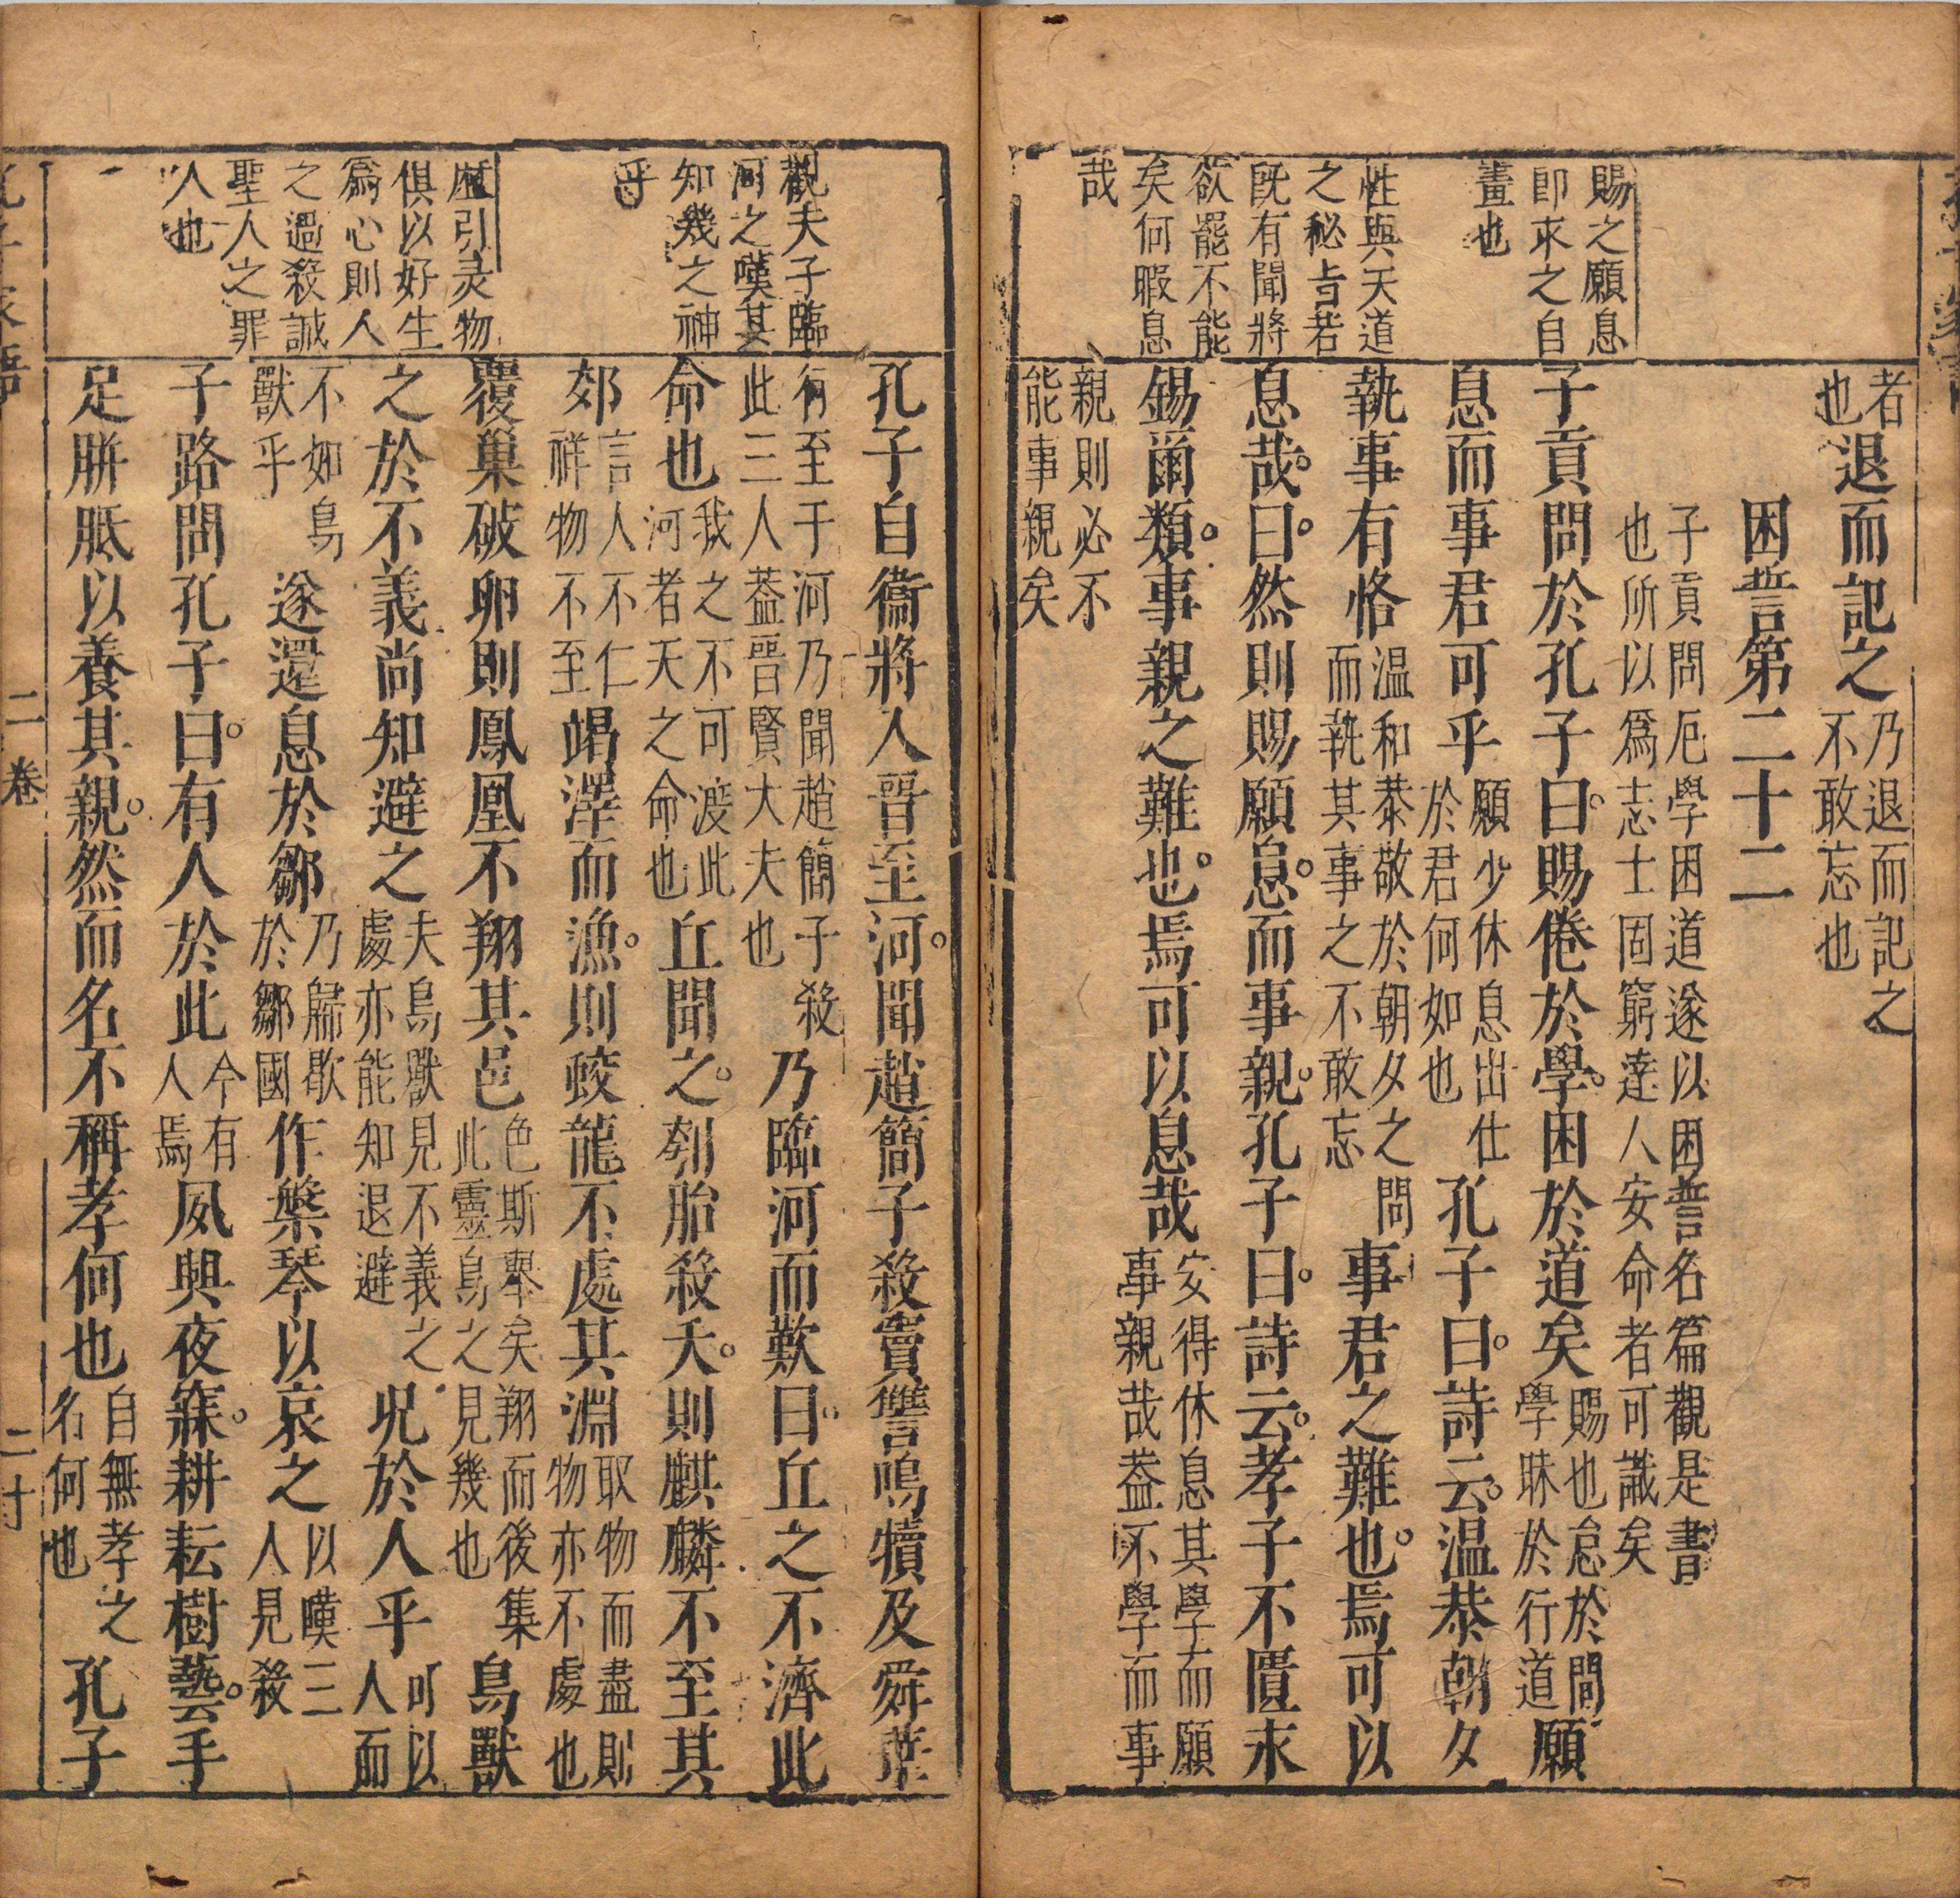 賜之願息
卽求之自
畫也
性與天道
之秘旨若
旣有聞將
欲罷不能
矣何暇息
哉
者
也
退而記之
乃退而記之
不敢忘也
困誓第二十二
子貢問厄學困道遂以困誓名篇觀是書
也所以爲志士固窮達人安命者可識矣
子貢問於孔子曰賜倦於學困於道矣
賜也怠於問
學昧於行道
願
息而事君可乎
願少休息出仕
於君何如也
孔子曰詩云温恭朝夕
執事有恪
温和恭敬於朝夕之間
而執其事之不敢忘
事君之難也焉可以
息哉曰然則賜願息而事親孔子曰詩云孝子不匱永
錫爾類事親之難也焉可以息哉
安得休息其學而願
事親哉葢不學而事
親則必不
能事親矣
觀夫子臨
河之嘆其
知幾之神
乎
歷引灵物
俱以好生
爲心則人
之過殺誠
聖人之罪
人也
孔子自衞將入晉至河聞趙簡子殺竇犨鳴犢及舜華
行至于河乃聞趙簡子殺
此三人葢晉賢大夫也
乃臨河而歎曰丘之不濟此
命也
我之不可渡此
河者天之命也
丘聞之刳胎殺夭則麒麟不至其
郊
言人不仁
祥物不至
竭澤而漁則蛟龍不處其淵
取物而盡則
物亦不處也
覆巢破卵則鳳凰不翔其邑
色斯舉矣翔而後集
此靈鳥之見幾也
鳥獸
之於不義尚知避之
夫鳥獸見不義之
處亦能知退避
况於人乎
可以
人而
不如鳥
獸乎
遂還息於鄒
乃歸歇
於鄒國
作槃琴以哀之
以嘆三
人見殺
子路問孔子曰有人於此
今有
人焉
夙興夜寐耕耘樹藝手
足胼胝以養其親然而名不稱孝何也
自無孝之
名何也
孔子
二卷
二十